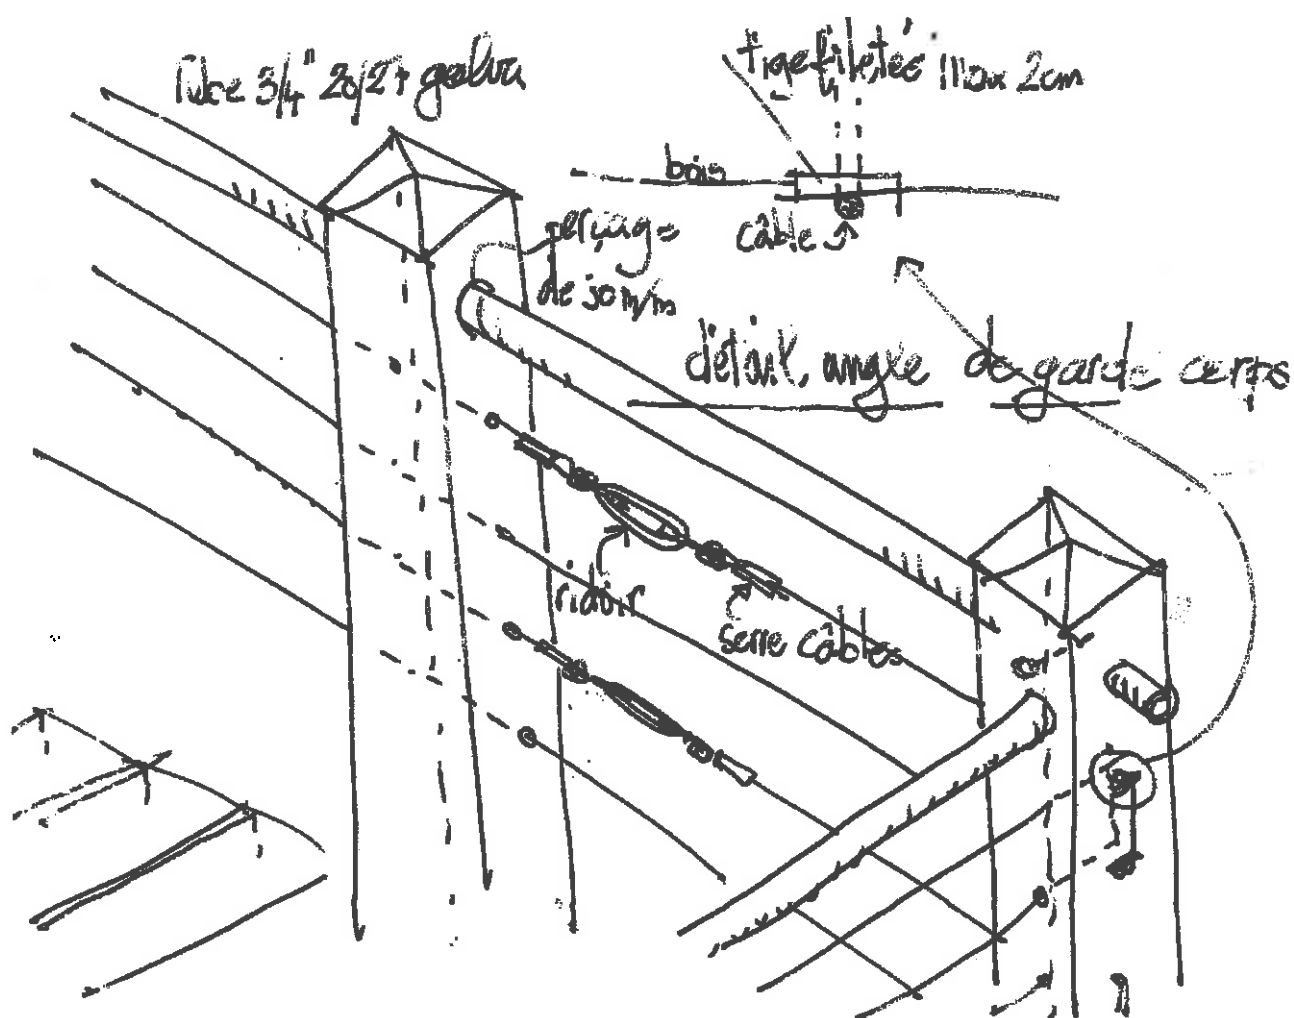 Tube 3/4" 20/27 galva
tige filetés max 2cm
bois
câble
perçage
de 30 m/m
détail angle de garde corps
ridoir
serre câbles